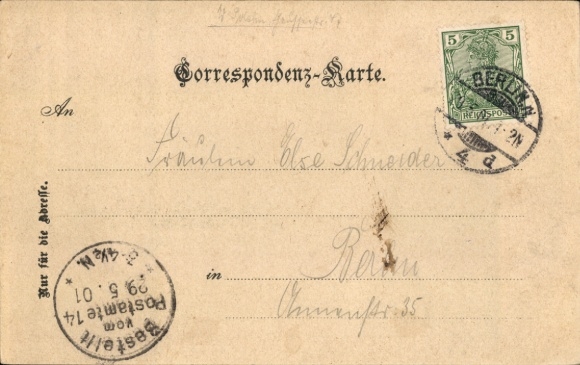 Correspondenz-Karte.
5
REICHSPOST
BERLIN. N.
4 d
An
Fräulein Else Schneider
in
Berlin
Annenstr. 35
Nur für die Adresse.
Bestellt
vom
Postamte 14
29.5.01
3-4½N.